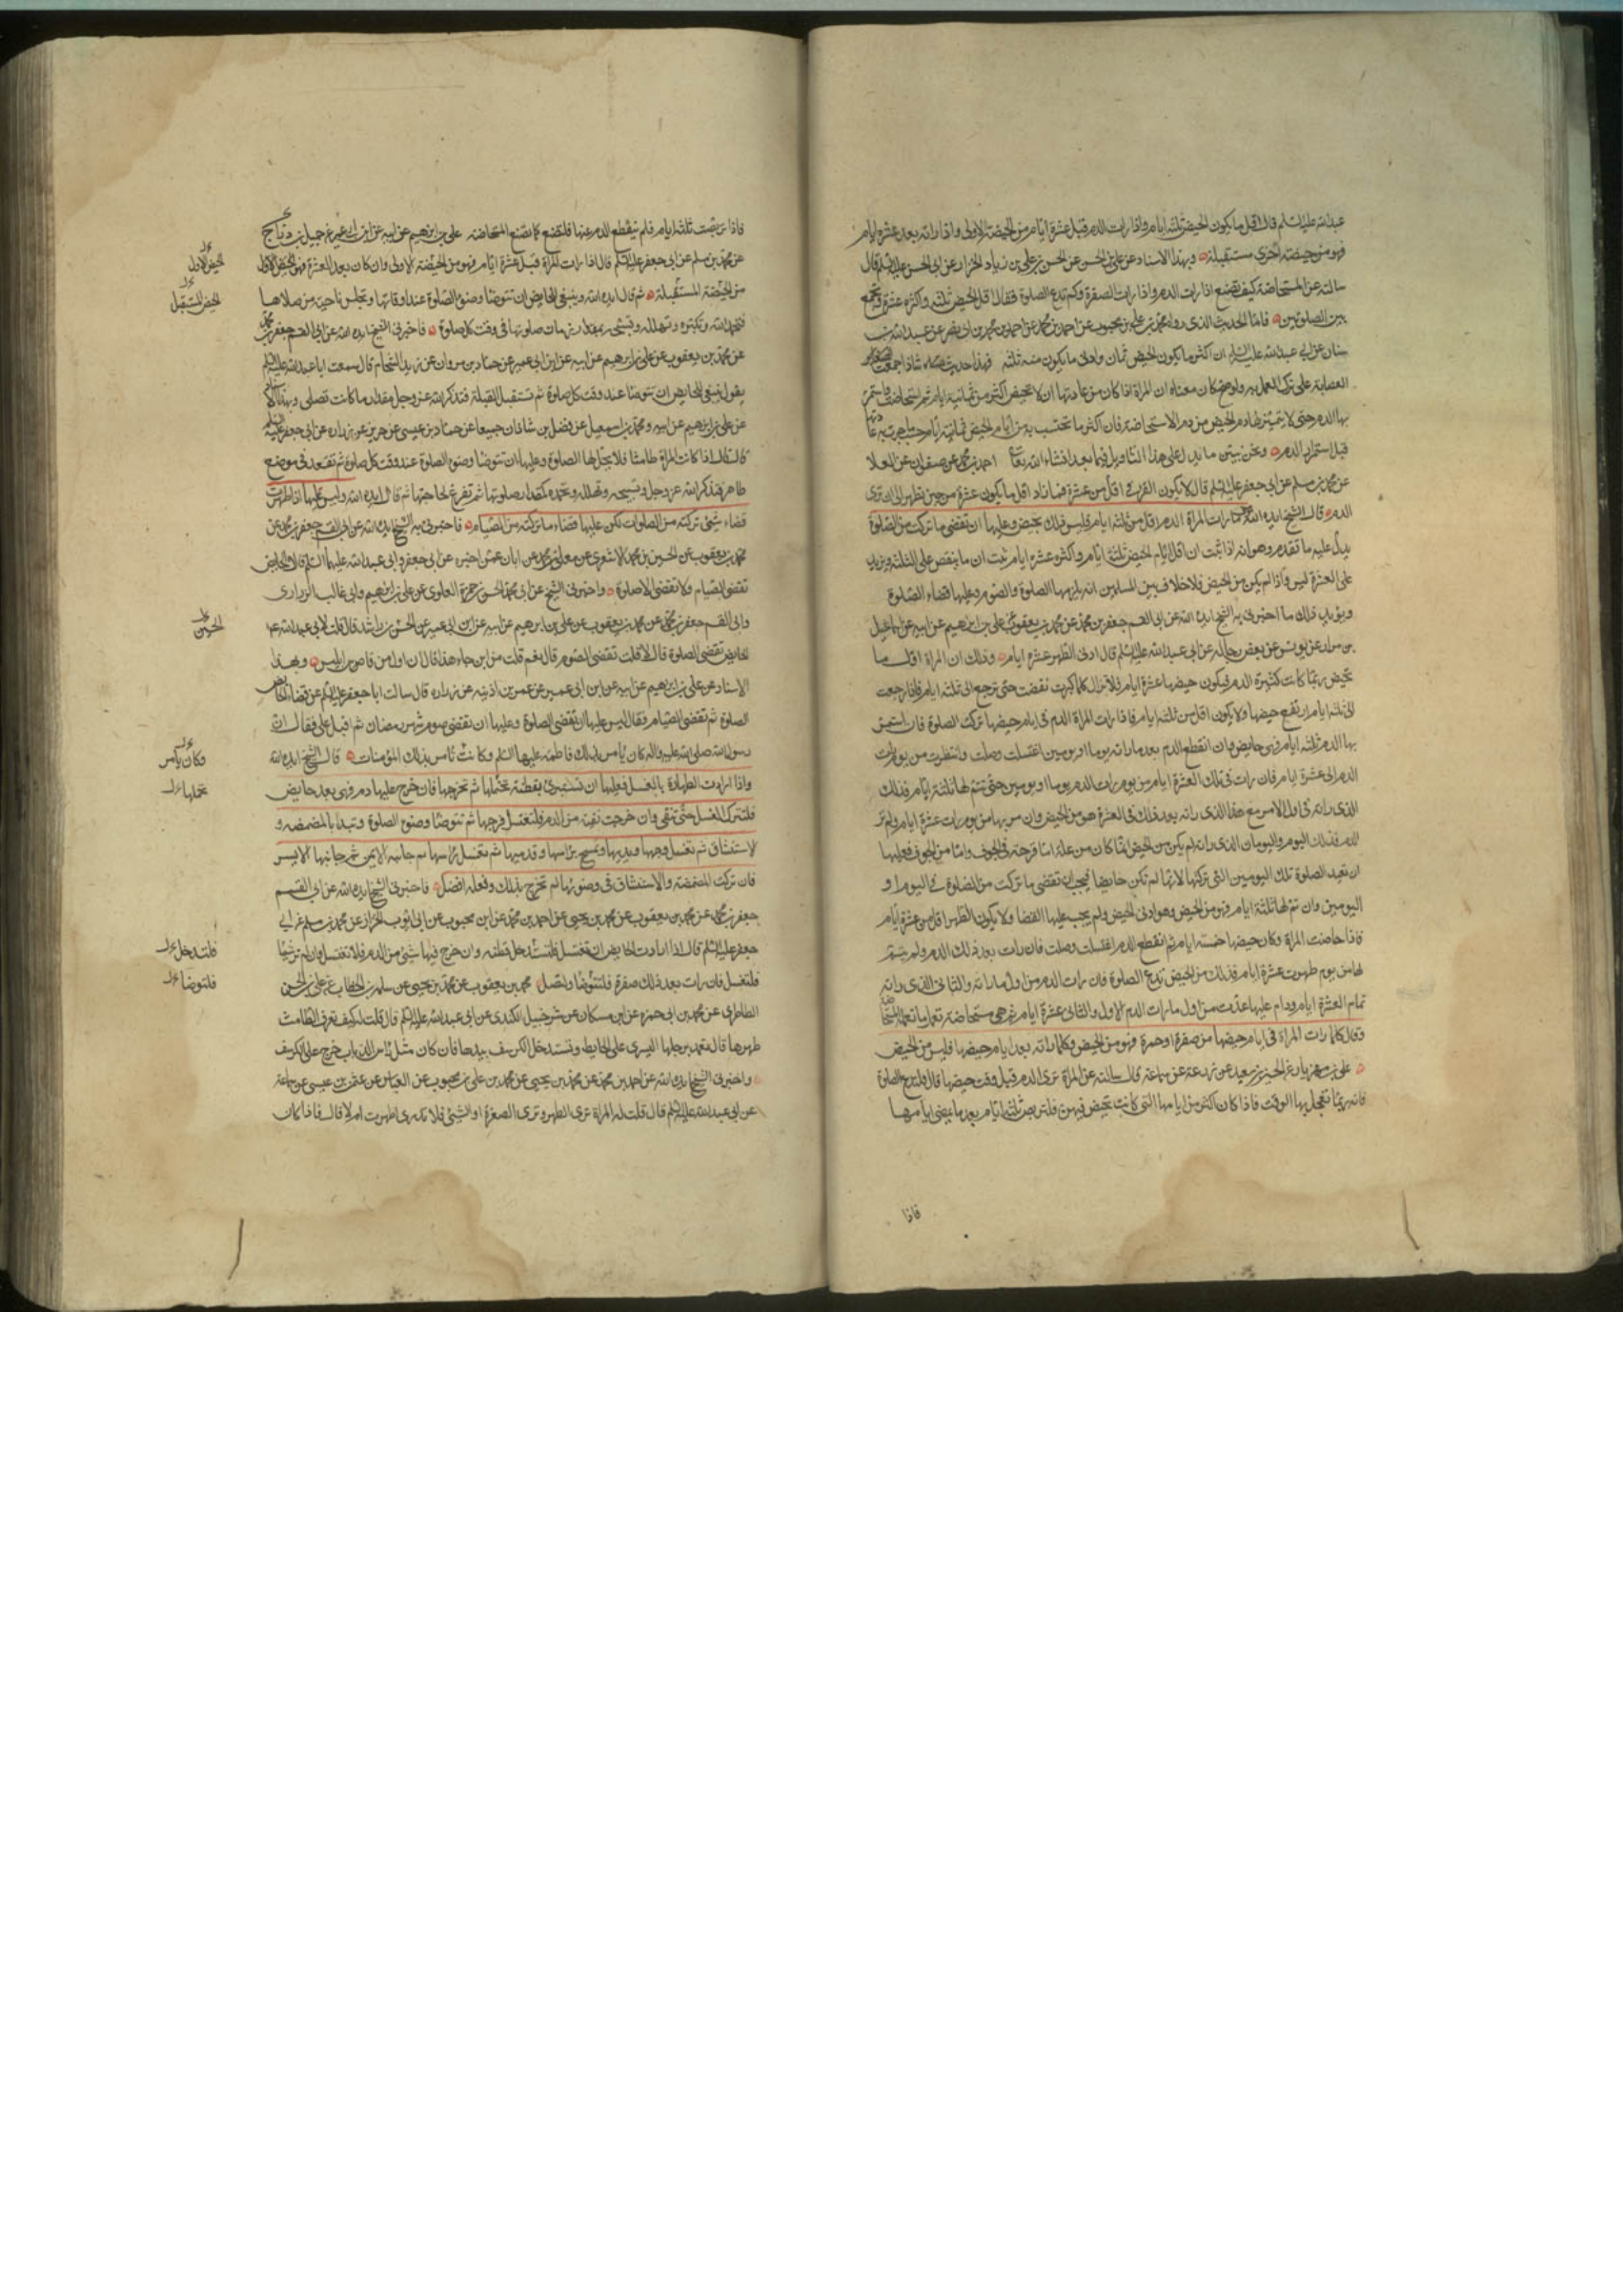 عبدالله عليه السلم قال اقل ما يكون الحيض ثلثه ايام واذا رات الدم قبل عشرة ايام فهو من الحيضة الاولى واذا راته بعد عشره ايام
فهو من حيضة اخرى مستقبلة وبهذا الاسناد عن علي بن الحسن عن الحسن بن علي بن زياد الخزاز عن ابي الحسن عليه السلم قال
سالته عن المستحاضة كيف تصنع اذا رات الدم واذا رات الصفرة وكم تدع الصلوة فقال اقل الحيض ثلثه واكثره عشرة وتجمع
بين الصلوتين فاما الحديث الذى رواه محمد بن علي بن محبوب عن احمد بن محمد عن احمد بن محمد بن ابي نصر عن عبد الله بن
سنان عن ابي عبد الله عليه السلم ان اكثر ما يكون الحيض ثمان وادنى ما يكون منه ثلثة فهذا حديث شاذ اجمعت
العصابة على ترك العمل به ولو صح كان معناه ان المراة اذا كان من عادتها ان لا تحيض اكثر من ثمانية ايام ثم استحاضت واستمر
بها الدم حتى لا يتميز لها دم الحيض من دم الاستحاضة فان اكثر ما تحتسب به من ايام الحيض ثمانية ايام حسب ما جرت به عادتها
قبل استمرار الدم ونحن نبين ما يدل على هذا التاويل فيما بعد انشاء الله تعالى احمد بن محمد عن صفوان عن العلا
عن محمد بن مسلم عن ابي جعفر عليه السلم قال لا يكون القرء في اقل من عشرة فما زاد اقل ما يكون عشرة من حين تطهر الى ان ترى
الدم قال الشيخ ايده الله رات المراة الدم اقل من ثلثة ايام فليس ذلك بحيض وعليها ان تقضى ما تركت من الصلوة
يدل عليه ما تقدم وهو انه اذا ثبت ان اقل ايام الحيض ثلثة ايام واكثره عشرة ايام ثبت ان ما ينقص على الثلثة ويزيد
على العشرة ليس واذا لم يكن من الحيض فلا خلاف بين المسلمين انه يلزمها الصلوة والصوم وعليها قضاء الصلوة
ويؤيد ذلك ما اخبرنى به الشيخ ايده الله عن ابي القسم جعفر بن محمد عن محمد بن يعقوب عن علي بن ابرهيم عن ابيه عن اسمعيل
بن مرار عن يونس عن بعض رجاله عن ابي عبد الله عليه السلم قال ادنى الطهر عشرة ايام وذلك ان المراة اول ما
تحيض ربما كانت كثيرة الدم فيكون حيضها عشرة ايام فلا تزال كلما كبرت نقصت حتى ترجع الى ثلثة ايام فاذا رجعت
الى ثلثة ايام ارتفع حيضها ولا يكون اقل من ثلثة ايام فاذا رات المراة الدم في ايام حيضها تركت الصلوة فان استمر
بها الدم ثلثة ايام فهى حايض وان انقطع الدم بعد ما راته يوما او يومين اغتسلت وصلت وانتظرت من يوم رات
الدم الى عشرة ايام فان رات في تلك العشرة ايام من يوم رات الدم يوما او يومين حتى تتم لها ثلثة ايام فذلك
الذى راته في اول الامر مع هذا الذى راته بعد ذلك في العشرة هو من الحيض وان مر بها من يوم رات عشرة ايام ولم تر
الدم فذلك اليوم واليومان الذى راته لم يكن من الحيض انما كان من علة اما قرحة في الجوف واما من الجوف فعليها
ان تعيد الصلوة تلك اليومين التى تركتها لانها لم تكن حايضا فيجب ان تقضى ما تركت من الصلوة في اليوم او
اليومين وان تم لها ثلثة ايام فهو من الحيض وهو ادنى الحيض ولم يجب عليها القضا ولا يكون الطهر اقل من عشرة ايام
فاذا حاضت المراة وكان حيضها خمسة ايام ثم انقطع الدم اغتسلت وصلت فان رات بعد ذلك الدم ولم يتم
لها من يوم طهرت عشرة ايام فذلك من الحيض تدع الصلوة فان رات الدم من اول ما راته والثانى الذى راته
تمام العشرة ايام ودام عليها عدت من اول ما رات الدم الاول والثانى عشرة ايام ثم هى مستحاضة تعمل ما تعمله المستحاضة
وقال كلما رات المراة في ايام حيضها من صفرة او حمرة فهو من الحيض وكلما راته بعد ايام حيضها فليس من الحيض
على بن مهزيار عن الحسين بن سعيد عن زرعة عن سماعة قال سالته عن المراة ترى الدم قبل وقت حيضها قال فلتدع الصلوة
فانه ربما تعجل بها الوقت فاذا كان اكثر من ايامها التى كانت تحيض فيهن فلتربص ثلثة ايام بعد ما يمضى ايامها
فاذا
فاذا تربصت ثلثة ايام فلم ينقطع الدم عنها فلتصنع كما تصنع المستحاضة على بن ابرهيم عن ابيه عن ابن ابي عمير عن جميل بن دراج
عن محمد بن مسلم عن ابي جعفر عليه السلم قال اذا رات المراة قبل عشرة ايام فهو من الحيضة الاولى وان كان بعد العشرة فهو
من الحيضة المستقبلة ثم قال ايده الله وينبغى للحايض ان تتوضا وضوء الصلوة عند اوقاتها وتجلس ناحية من مصلاها
فتحمد الله وتكبره وتهلله وتسبحه بمقدار زمان صلوتها في وقت كل صلوة فاخبرنى الشيخ ايده الله عن ابي القسم جعفر بن محمد
عن محمد بن يعقوب عن علي بن ابرهيم عن ابيه عن ابن ابي عمير عن حماد بن مروان عن زيد الشحام قال سمعت ابا عبد الله عليه السلم
يقول ينبغى للحايض ان تتوضا عند وقت كل صلوة ثم تستقبل القبلة فتذكر الله عز وجل مقدار ما كانت تصلى وبهذا
عن على بن ابرهيم عن ابيه ومحمد بن اسمعيل عن فضل بن شاذان جميعا عن حماد بن عيسى عن حريز عن زراره عن ابي جعفر عليه السلم
قال قال اذا كانت المراة طامثا فلا يحل لها الصلوة وعليها ان تتوضا وضوء الصلوة عند وقت كل صلوة ثم تقعد في موضع
طاهر فتذكر الله عز وجل وتسبحه وتهلله وتحمده كمقدار صلوتها ثم تفرغ لحاجتها ثم قال ايده الله وليس عليها اذا طهرت
قضاء شئ تركته من الصلوات لكن عليها قضاء ما تركته من الصيام فاخبرنى به الشيخ ايده الله عن ابي القسم جعفر بن محمد عن
محمد بن يعقوب عن الحسين بن محمد الاشعرى عن معلى بن محمد عن ابان عمن اخبره عن ابي جعفر وابي عبد الله عليهما السلم قالا الحايض
تقضى الصيام ولا تقضى الصلوة واخبرنى الشيخ عن ابي محمد الحسن بن حمزة العلوى عن علي بن ابرهيم وابي غالب الزرارى
وابي القسم جعفر بن محمد عن محمد بن يعقوب عن علي بن ابرهيم عن ابيه عن ابن ابي عمير عن الحسن بن راشد قال قلت لابي عبد الله عليه
الحايض تقضى الصلوة قال لا قلت تقضى الصوم قال نعم قلت من اين جاء هذا قال ان اول من قاس ابليس وبهذا
الاسناد عن علي بن ابرهيم عن ابيه عن ابن ابي عمير عن عمر بن اذينه عن زراره قال سالت ابا جعفر عليه السلم عن قضاء الحايض
الصلوة ثم تقضى الصيام فقال ليس عليها ان تقضى الصلوة وعليها ان تقضى صوم شهر رمضان ثم اقبل على فقال ان
رسول الله صلى الله عليه واله كان يأمر بذلك فاطمة عليها السلم وكانت تأمر بذلك المؤمنات قال الشيخ ايده الله
واذا ارادت الطهارة بالغسل فعليها ان تستبرئ بقطنة تحتملها ثم تخرجها فان خرج عليها دم فهى بعد حايض
فلتترك الغسل حتى تنقى وان خرجت نقية من الدم فلتغسل فرجها ثم تتوضا وضوء الصلوة وتبدا بالمضمضه و
الاستنشاق ثم تغسل وجهها ويديها وتمسح براسها وقدميها ثم تغسل راسها ثم جانبها الايمن ثم جانبها الايسر
فان تركت المضمضة والاستنشاق في وضوئها لم تحرج بذلك وفعله افضل فاخبرنى الشيخ ايده الله عن ابي القسم
جعفر بن محمد عن محمد بن يعقوب عن محمد بن يحيى عن احمد بن محمد عن ابن محبوب عن ابي ايوب الخزاز عن محمد بن مسلم عن ابي
جعفر عليه السلم قال اذا ارادت الحايض ان تغتسل فلتستدخل قطنه وان خرج فيها شئ من الدم فلا تغتسل وان لم تر شيئا
فلتغسل فان رات بعد ذلك صفرة فلتتوضا ولتصل محمد بن يعقوب عن محمد بن يحيى عن سلمه بن الخطاب عن علي بن الحسن
الطاطرى عن محمد بن ابي حمزه عن ابن مسكان عن شرحبيل الكندى عن ابي عبد الله عليه السلم قال قلت له كيف تعرف الطامث
طهرها قال تعمد برجلها اليسرى على الحايط وتستدخل الكرسف بيدها فان كان مثل راس الذباب خرج على الكرسف
واخبرنى الشيخ ايده الله عن احمد بن محمد عن محمد بن يحيى عن محمد بن علي بن محبوب عن العباس عن عثمن بن عيسى عن سماعة
عن ابي عبد الله عليه السلم قال قلت له المراة ترى الطهر وترى الصفرة او الشئ فلا تدرى اطهرت ام لا قال فاذا كان
الحيض الاول
الحيض المستقبل
الحسين
وكان يامر
تحملها
فلتدخل
فلتوضا